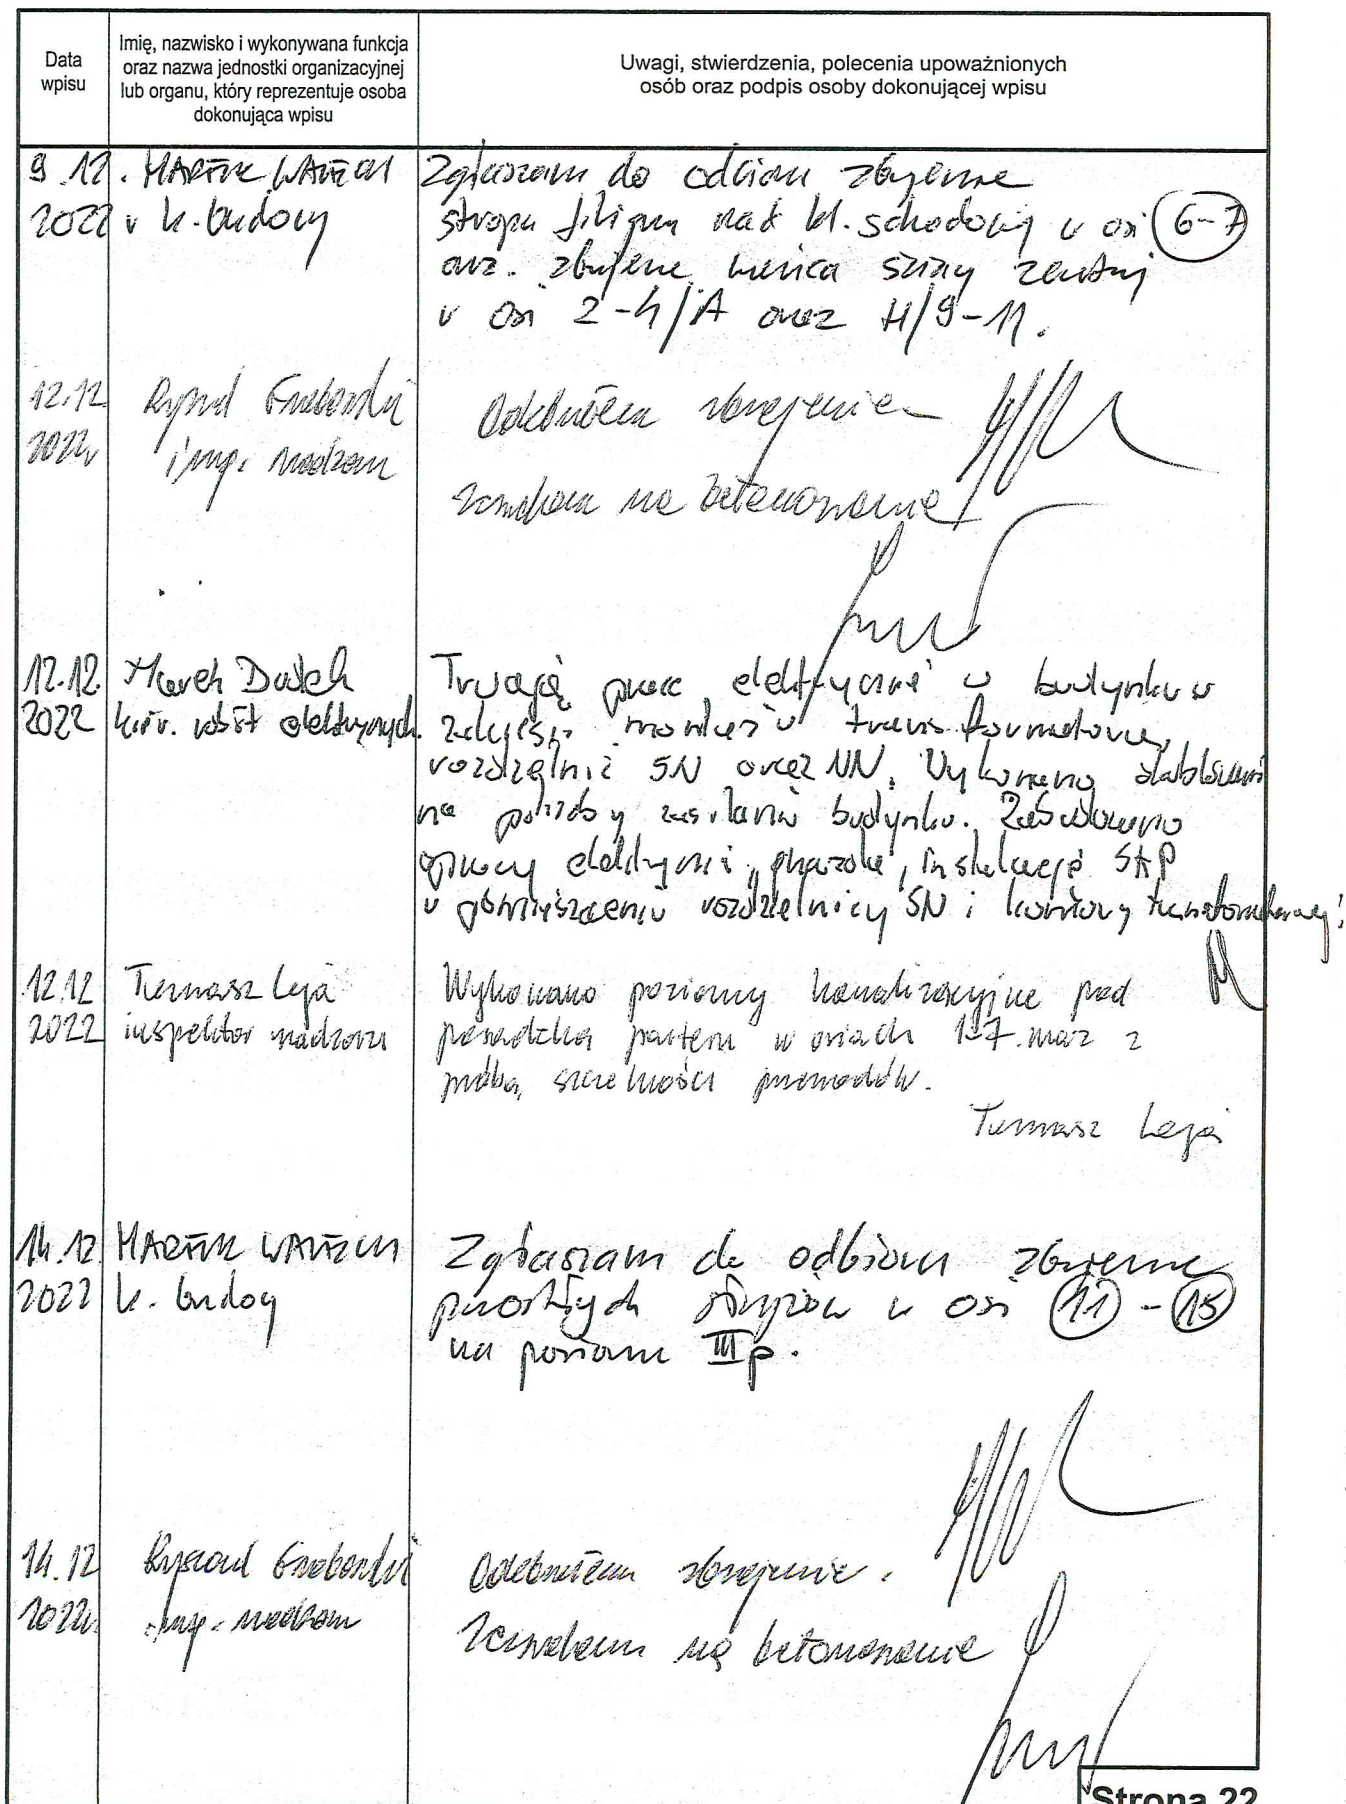 Data
wpisu
Imię, nazwisko i wykonywana funkcja
oraz nazwa jednostki organizacyjnej
lub organu, który reprezentuje osoba
dokonująca wpisu
Uwagi, stwierdzenia, polecenia upoważnionych
osób oraz podpis osoby dokonującej wpisu
9.12.
2022 r
k. budowy
Zgłaszam do odbioru zbrojenie
stropu filigran nad kl. schodową w osi 6-7
oraz. zbrojenie wieńca ściany
w osi 2-4/A oraz H/9-11.
12.12
2022r
Ryszard
insp. nadzoru
Odebrałem zbrojenie
Zezwalam na betonowanie
12.12.
2022
Marek
kier. robót elektrycznych.
Trwają prace elektryczne w budynku w
montażu transformatora,
rozdzielnic SN oraz NN. Wykonano
na potrzeby zasilania budynku. Zabudowano
oprawy elektryczne, gniazda, instalację SAP
w pomieszczeniu rozdzielnicy SN i komory transformatorowej.
12.12
2022
Tomasz Leja
inspektor nadzoru
Wykonano poziomy kanalizacyjne pod
posadzką parteru w osiach 1-7. wraz z
próbą szczelności przewodów.
Tomasz Leja
14.12
2022
k. budowy
Zgłaszam do odbioru zbrojenie
pozostałych stropów w osi 11 - 15
na poziomie III p.
14.12
2022r.
Ryszard
insp. nadzoru
Odebrałem zbrojenie.
Zezwalam na betonowanie
Strona 22